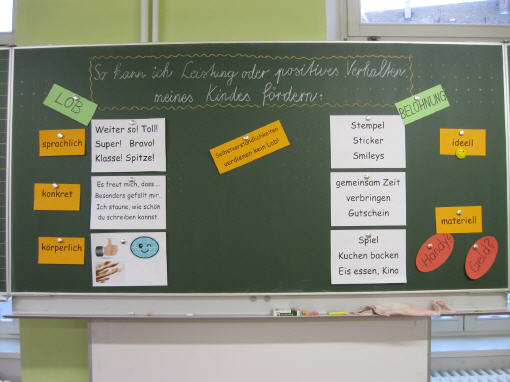 So kann ich Leistung oder positives Verhalten
meines Kindes fördern:
LOB
sprachlich
Weiter so! Toll!
Super! Bravo!
Klasse! Spitze!
konkret
Es freut mich, dass...
Besonders gefällt mir...
Ich staune, wie schön
du schreiben kannst.
körperlich
Selbstverständlichkeiten
verdienen kein Lob!
BELOHNUNG
Stempel
Sticker
Smileys
ideell
gemeinsam Zeit
verbringen
Gutschein
materiell
Spiel
Kuchen backen
Eis essen, Kino
Handy?
Geld?